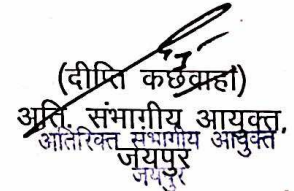 (दीप्ति कछवाहा)
अति. संभागीय आयुक्त,
अतिरिक्त संभागीय आयुक्त
जयपुर
जयपुर